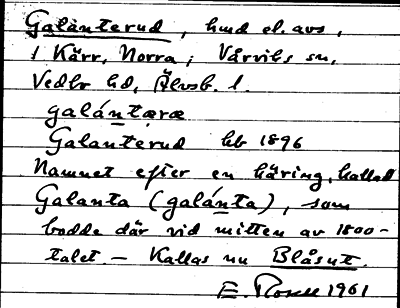 Galánterud, hmd el. avs.,
1 Kärr, Norra; Vårviks sn,
Vedbo hd, Älvsb. l.
galántæræ
Galanterud hb 1896
Namnet efter en häring, kallad
Galanta (galánta), som
bodde där vid mitten av 1800-
talet. — Kallas nu Blåsut.
E. 1961